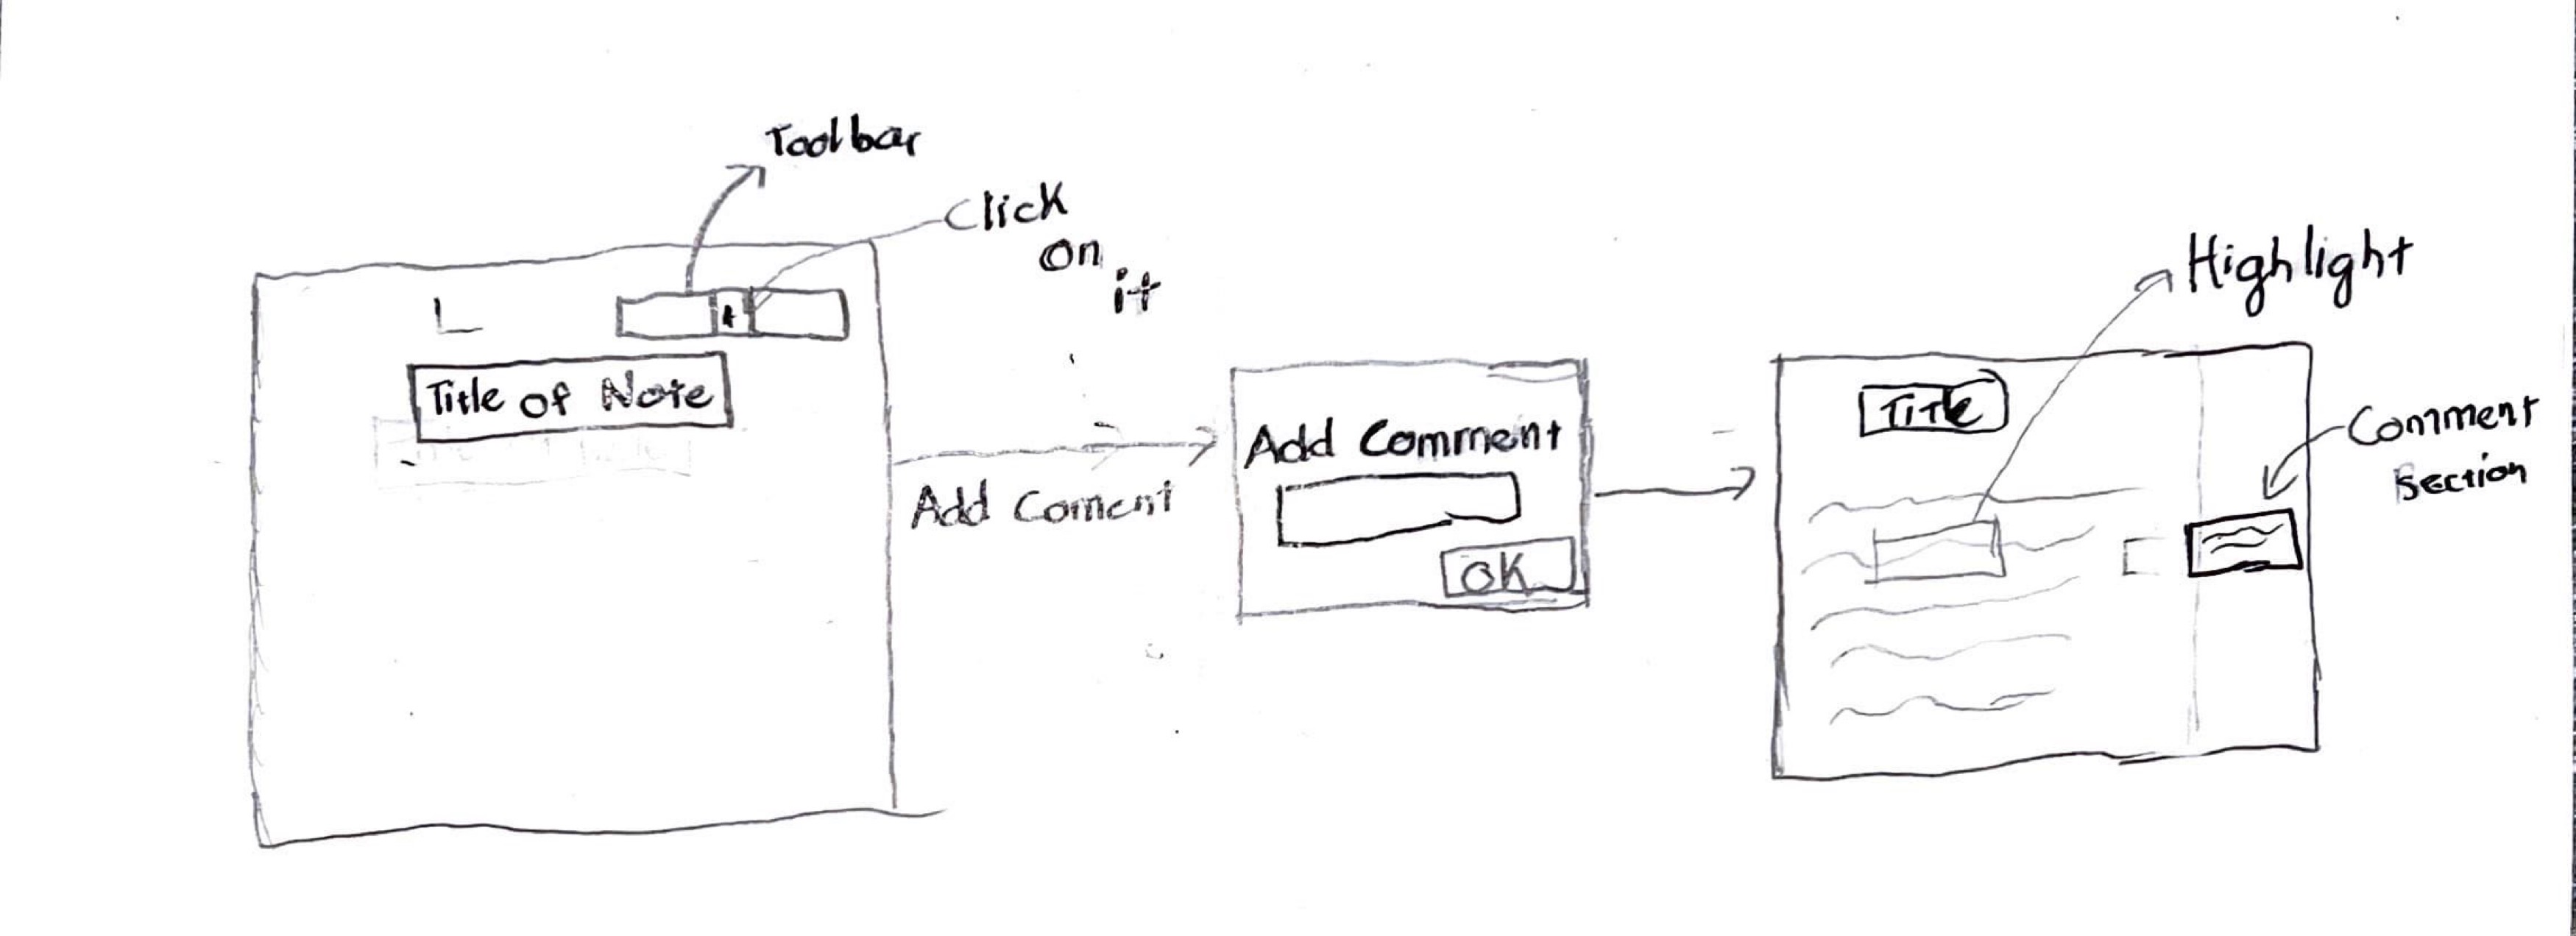 Toolbar
Click
on
it
+
Title of Note
Add Coment
Add Comment
OK
Highlight
Title
Comment
Section